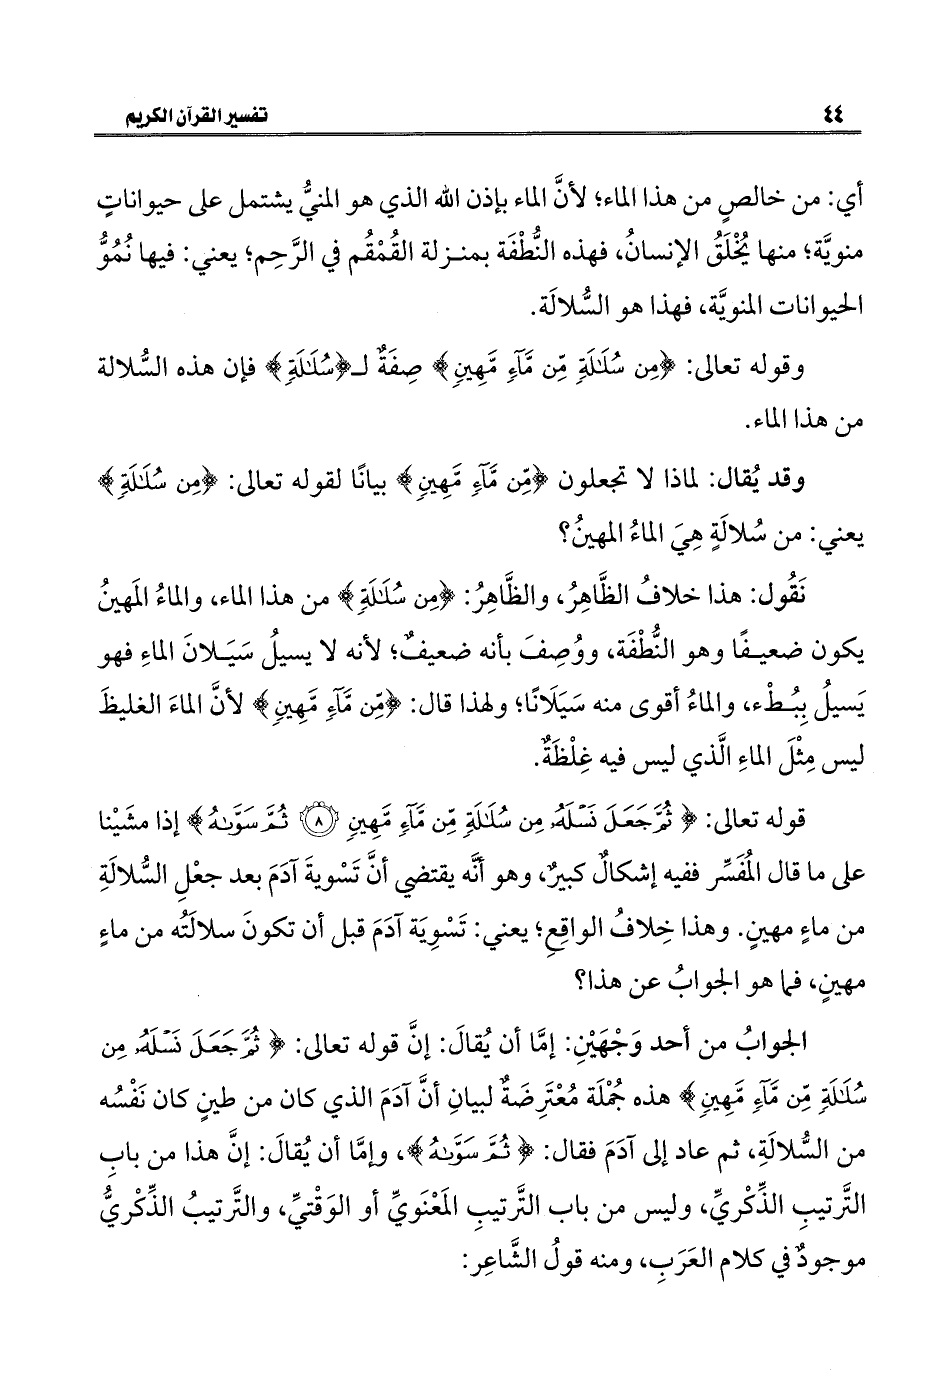 ٤٤
تفسير القرآن الكريم
أي: من خالصٍ من هذا الماء؛ لأنَّ الماء بإذن الله الذي هو المنيُّ يشتمل على حيواناتٍ
منويَّة؛ منها يُخْلَقُ الإنسانُ، فهذه النُّطْفَة بمنـزلة القُمْقُم في الرَّحِم؛ يعني: فيها نُمُوُّ
الحيوانات المنويَّة، فهذا هو السُّلالَة.
وقوله تعالى: ﴿مِن سُلَٰلَةٍ مِّن مَّآءٍ مَّهِينٍ﴾ صِفَةٌ لـ﴿سُلَٰلَةٍ﴾ فإن هذه السُّلالة
من هذا الماء.
وقد يُقال: لماذا لا تجعلون ﴿مِّن مَّآءٍ مَّهِينٍ﴾ بيانًا لقوله تعالى: ﴿مِن سُلَٰلَةٍ﴾
يعني: من سُلالَةٍ هِيَ الماءُ المهينُ؟
نَقُول: هذا خلافُ الظَّاهِرُ، والظَّاهِرُ: ﴿مِن سُلَٰلَةٍ﴾ من هذا الماء، والماءُ المَهينُ
يكون ضعيـفًا وهو النُّطْفَة، ووُصِفَ بأنه ضعيفٌ؛ لأنه لا يسيلُ سَيَـلانَ الماءِ فهو
يَسيلُ بِبُـطْء، والماءُ أقوى منه سَيَلَانًا؛ ولهذا قال: ﴿مِّن مَّآءٍ مَّهِينٍ﴾ لأنَّ الماءَ الغليظَ
ليس مِثْلَ الماءِ الَّذي ليس فيه غِلْظَةٌ.
قوله تعالى: ﴿ثُمَّ جَعَلَ نَسْلَهُۥ مِن سُلَٰلَةٍ مِّن مَّآءٍ مَّهِينٍ ۝٨ ثُمَّ سَوَّىٰهُ﴾ إذا مشَيْنا
على ما قال المُفَسِّر ففيه إشكالٌ كبيرٌ، وهو أنَّه يقتضي أنَّ تَسْويةَ آدَمَ بعد جعْلِ السُّلالَةِ
من ماءٍ مهينٍ. وهذا خِلافُ الواقِعِ؛ يعني: تَسْوِيَة آدَمَ قبل أن تكونَ سلالَتُه من ماءٍ
مهينٍ، فما هو الجوابُ عن هذا؟
الجوابُ من أحد وَجْهَيْنِ: إمَّا أن يُقالَ: إنَّ قوله تعالى: ﴿ثُمَّ جَعَلَ نَسْلَهُۥ مِن
سُلَٰلَةٍ مِّن مَّآءٍ مَّهِينٍ﴾ هذه جُمْلَة مُعْتَرِضَةٌ لبيانِ أنَّ آدَمَ الذي كان من طينٍ كان نَفْسُه
من السُّلالَةِ، ثم عاد إلى آدَمَ فقال: ﴿ثُمَّ سَوَّىٰهُ﴾، وإمَّا أن يُقالَ: إنَّ هذا من بابِ
التَّرتيبِ الذِّكْريِّ، وليس من باب التَّرتيبِ المَعْنَويِّ أو الوَقْتيِّ، والتَّرتيبُ الذِّكْريُّ
موجودٌ في كلام العَرَبِ، ومنه قولُ الشَّاعِر: